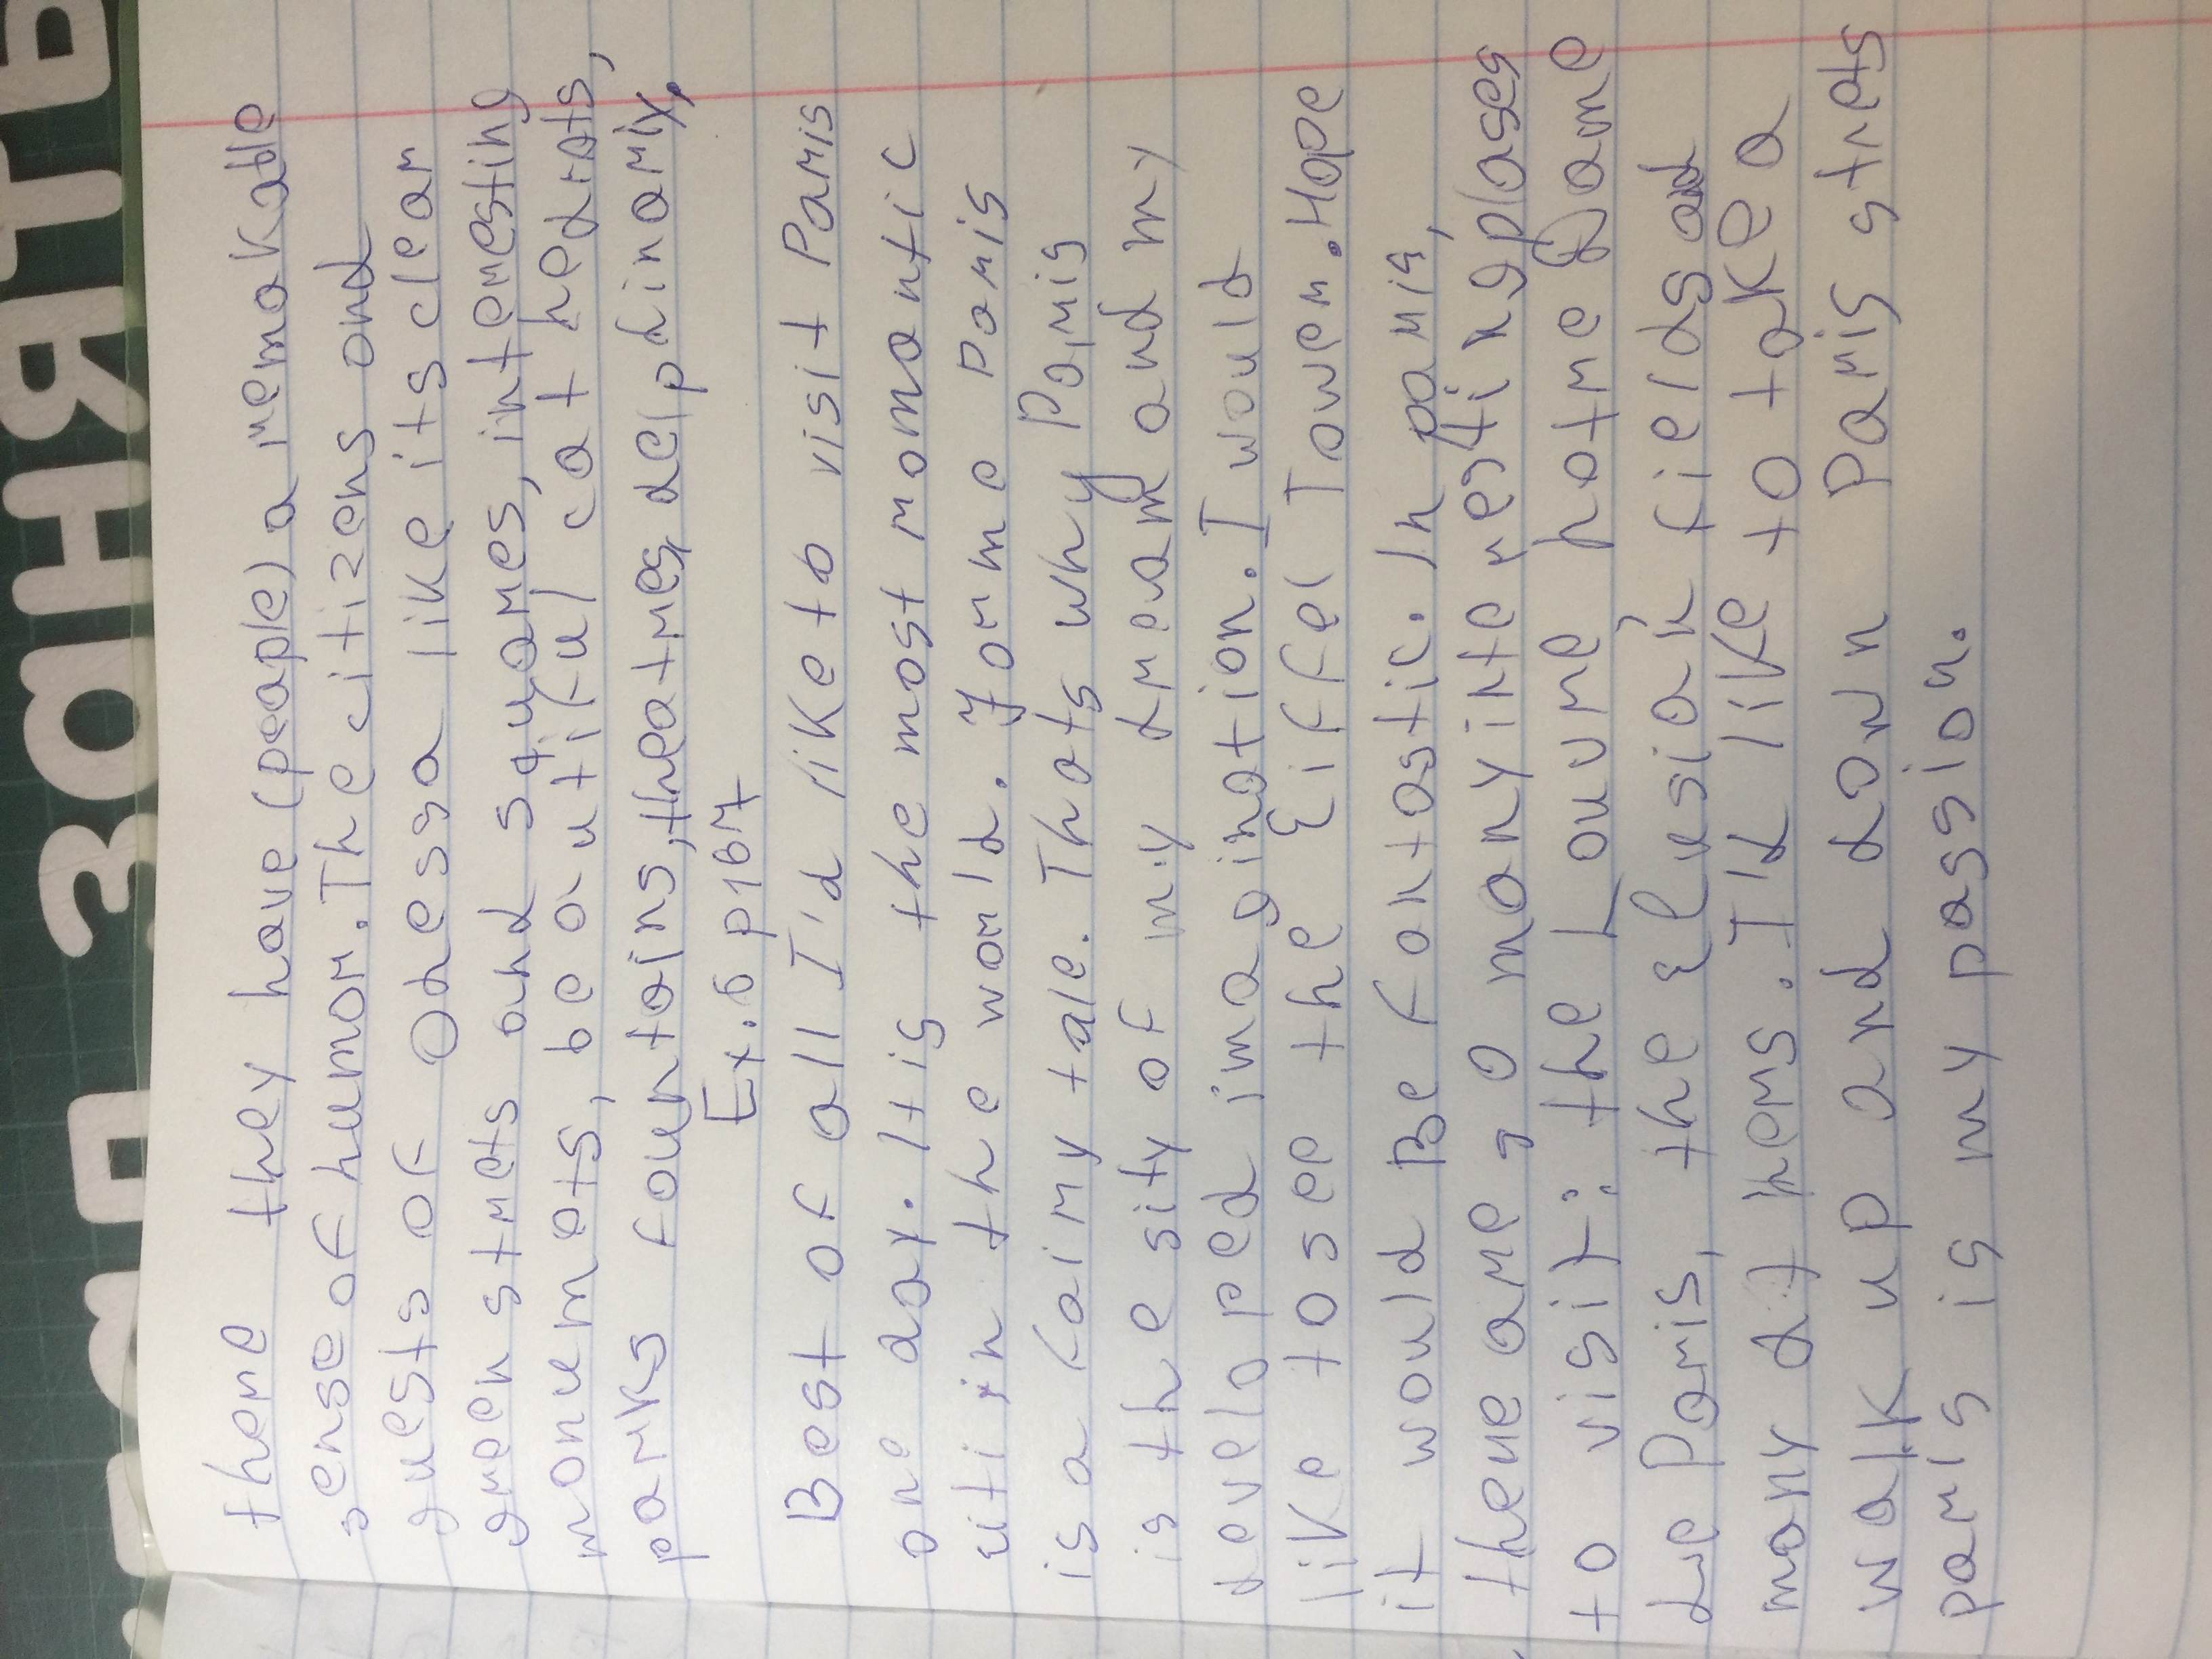 there they have (people) a remakable
sense of humor. The citizens and
guests of Odessa like its clear
green strets and squares, interesting
monumets, beautiful cathedrats,
parks fountains, theatres, delphinariy.
Ex. 6 p167
Best of all I'd like to visit Paris
one day. It is the most romantic
citi in the world. For me Paris
is a fairy tale. Thats why Paris
is the sity of my dream and my
developed imagination. I would
like to see the Eiffel Tower. Hope
it would Be fantastic. In paris,
there are so many interesting plases
to visit: the Louvre notre Dame
due Paris, the Elusian fields and
many athers. I'd like to take a
walk up and down Paris strets
paris is my passion.